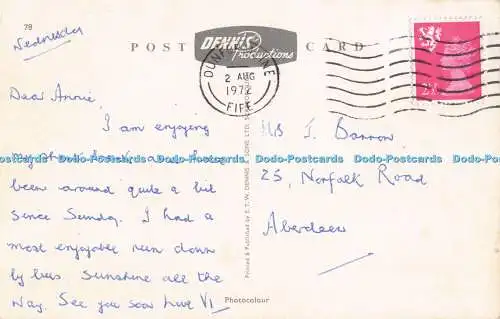 78
Wednesday
POST CARD
DENNIS
Productions
2 AUG
1972
FIFE
2½P
Dear Annie,
I am enjoying
my short break, and have
been around quite a bit
since Sunday. I had a
most enjoyable run down
by bus. Sunshine all the
way. See you soon love VI
Mrs J. Barron,
25, Norfolk Road
Aberdeen
Printed & Published by E.T.W. DENNIS & SONS LTD.
Photocolour
Dodo-Postcards Dodo-Postcards Dodo-Postcards Dodo-Postcards Dodo-Postcards